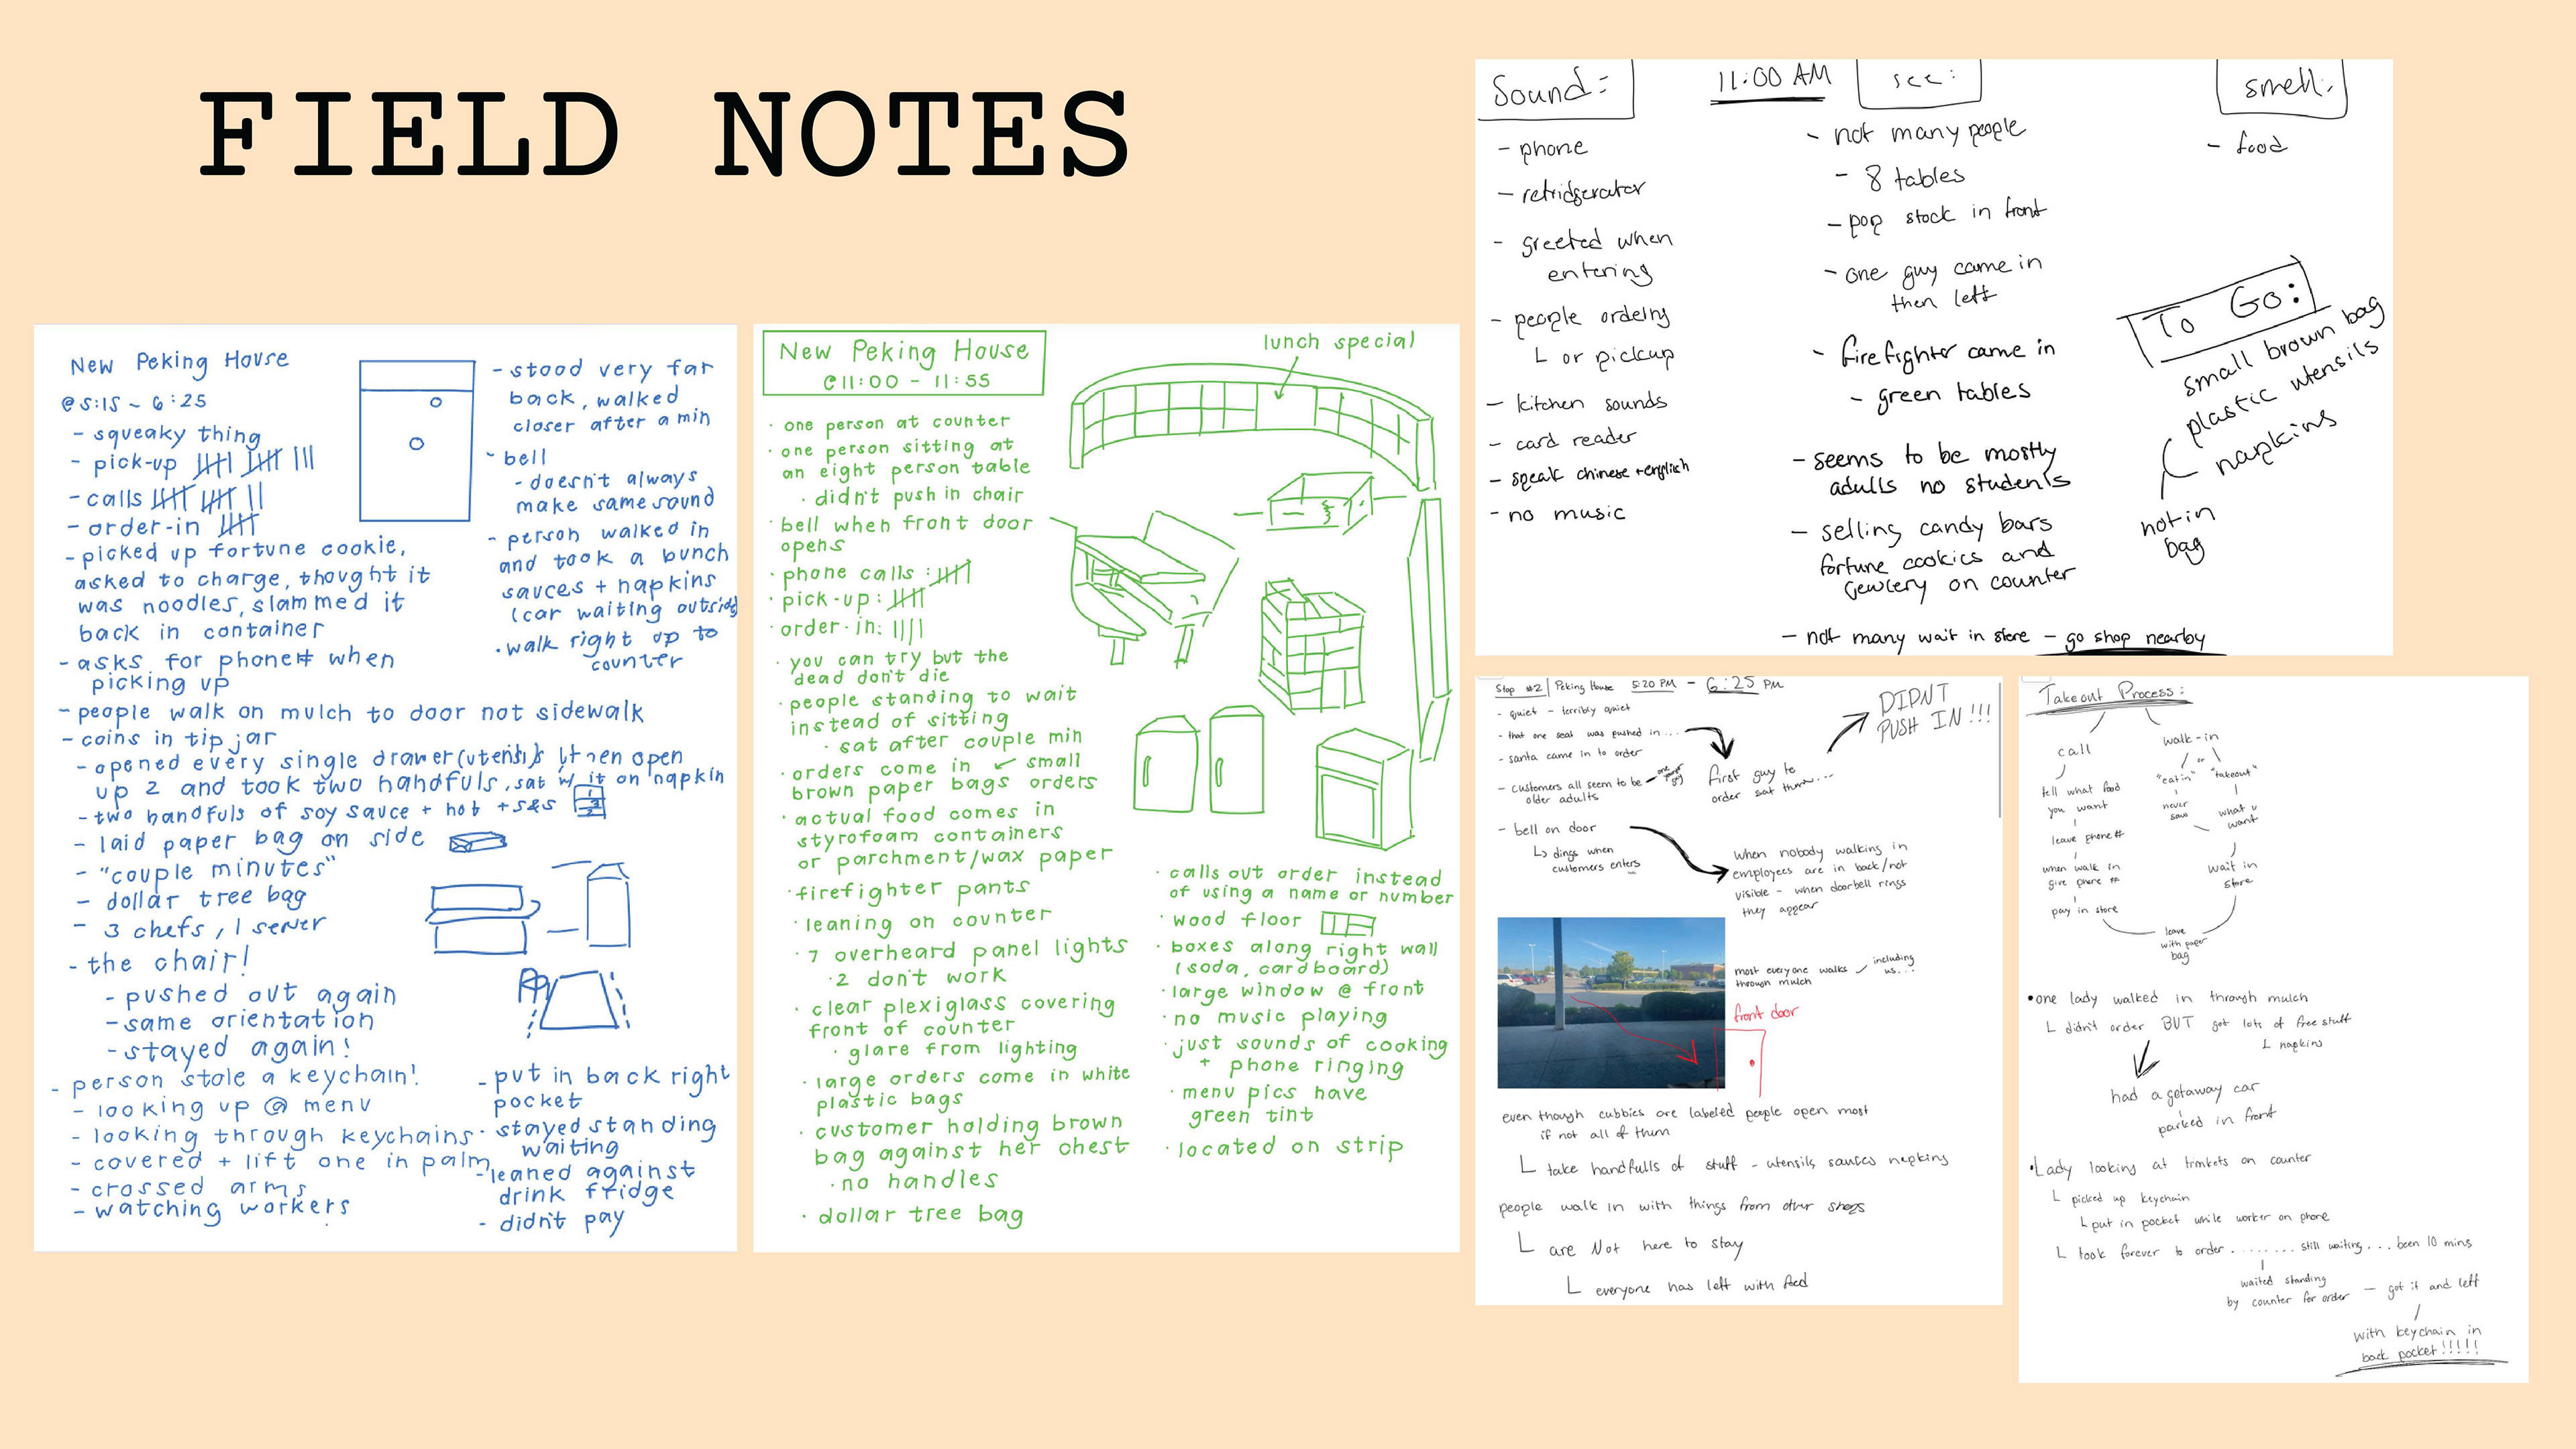 FIELD NOTES
New Peking House
@ 5:15 ~ 6:25
- squeaky thing
- pick-up
- calls
- order-in
- picked up fortune cookie,
asked to charge, thought it
was noodles, slammed it
back in container
- asks for phone# when
picking up
- people walk on mulch to door not sidewalk
- coins in tip jar
- opened every single drawer (utensils) then open
up 2 and took two handfuls, sat w/ it on napkin
- two handfuls of soy sauce + hot + s&s
- laid paper bag on side
- "couple minutes"
- dollar tree bag
- 3 chefs, 1 server
- the chair!
- pushed out again
- same orientation
- stayed again!
- person stole a keychain!
- looking up @ menu
- looking through keychains
- covered + lift one in palm
- crossed arms
- watching workers
- stood very far
back, walked
closer after a min
- bell
- doesn't always
make same sound
- person walked in
and took a bunch
sauces + napkins
(car waiting outside)
· walk right up to
counter
- put in back right
pocket
· stayed standing
waiting
- leaned against
drink fridge
- didn't pay
New Peking House
@ 11:00 - 11:55
lunch special
· one person at counter
· one person sitting at
an eight person table
· didn't push in chair
· bell when front door
opens
· phone calls:
· pick-up:
· order-in:
· you can try but the
dead don't die
· people standing to wait
instead of sitting
· sat after couple min
· orders come in small
brown paper bags orders
· actual food comes in
styrofoam containers
or parchment/wax paper
· firefighter pants
· leaning on counter
· 7 overheard panel lights
· 2 don't work
· clear plexiglass covering
front of counter
· glare from lighting
· large orders come in white
plastic bags
· customer holding brown
bag against her chest
· no handles
· dollar tree bag
· calls out order instead
of using a name or number
· wood floor
· boxes along right wall
(soda, cardboard)
· large window @ front
· no music playing
· just sounds of cooking
+ phone ringing
· menu pics have
green tint
· located on strip
Sound:
- phone
- retridgerator
- greeted when
entering
- people ordeing
L or pickup
- kitchen sounds
- card reader
- speak chinese + english
- no music
11:00 AM
see:
- not many people
- 8 tables
- pop stock in front
- one guy came in
then left
- firefighter came in
- green tables
- seems to be mostly
adults no students
- selling candy bars
fortune cookies and
Jewlery on counter
- not many wait in store - go shop nearby
smell:
- food
To Go:
small brown bag
plastic utensils
napkins
not in
bag
Stop #2 | Peking House 5:20 PM - 6:25 PM
- quiet - terribly quiet
- that one seat was pushed in...
- santa came in to order
- customers all seem to be
older adults
first guy to
order sat there...
DIDNT
PUSH IN!!!
- bell on door
dings when
customers enters
when nobody walking in
employees are in back/not
visible - when doorbell rings
they appear
most everyone walks
through mulch
including
us...
front door
even though cubbies are labeled people open most
if not all of them
L take handfulls of stuff - utensils sauces napkins
people walk in with things from other shops
L are Not here to stay
L everyone has left with food
Takeout Process:
call
tell what food
you want
leave phone #
when walk in
give phone #
pay in store
walk-in
or
"eat in"
never
saw
"takeout"
what u
want
wait in
store
leave
with paper
bag
• one lady walked in through mulch
L didn't order BUT got lots of free stuff
L napkins
had a getaway car
parked in front
• Lady looking at trinkets on counter
L picked up keychain
L put in pocket while worker on phone
L took forever to order........ still waiting... been 10 mins
waited standing
by counter for order - got it and left
with keychain in
back pocket!!!!!